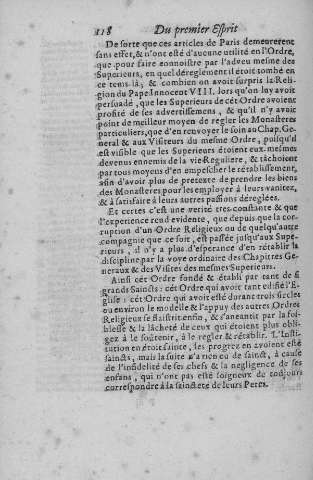 118 Du premier Esprit
De sorte que ces articles de Paris demeurerent
sans effet, & n'ont esté d'aucune utilité en l'Ordre,
que pour faire connoistre par l'adveu mesme des
Superieurs, en quel déreglement il étoit tombé en
ce tems là; & combien on avoit surpris la Reli-
gion du Pape Innocent VIII. lors qu'on luy avoit
persuadé, que les Superieurs de cét Ordre avoient
profité de ses advertissemens, & qu'il n'y avoit
point de meilleur moyen de regler les Monasteres
particuliers, que d'en renvoyer le soin au Chap. Ge-
neral & aux Visiteurs du mesme Ordre, puisqu'il
est visible que les Superieurs étoient eux-mesmes
devenus ennemis de la vie Reguliere, & tâchoient
par tous moyens d'en empescher le rétablissement,
afin d'avoir plus de pretexte de prendre les biens
des Monasteres pour les employer à leurs vanitez,
& à satisfaire à leurs autres passions déreglées.
Et certes c'est une verité tres-constante & que
l'experience rend evidente, que depuis que la cor-
ruption d'un Ordre Religieux ou de quelqu'autre
compagnie que ce soit, est passée jusqu'aux Supe-
rieurs, il n'y a plus d'esperance d'en rétablir la
discipline par la voye ordinaire des Chapitres Ge-
neraux & des Visites des mesmes Superieurs.
Ainsi cét Ordre fondé & établi par tant de si
grands Saincts: cét Ordre qui avoit tant edifié l'E-
glise: cét Ordre qui avoit esté durant trois siecles
ou environ le modelle & l'appuy des autres Ordres
Religieux se flaistrit enfin, & s'aneantit par la foi-
blesse & la lâcheté de ceux qui étoient plus obli-
gez à le soûtenir, à le regler & rétablir. L'Insti-
tution en étoit saincte, les progrez en avoient esté
saincts, mais la suite n'a rien eu de sainct, à cause
de l'infidelité de ses chefs & la negligence de ses
enfans, qui n'ont pas esté soigneux de toûjours
correspondre à la saincteté de leurs Peres.